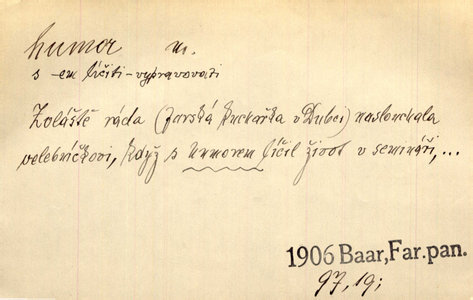 humor m.
s -em líčiti - vypravovati
Zvláště ráda (farská kuchařka v Dubci) naslouchala
velebníčkovi, když s humorem líčil život v semináři,...
1906 Baar, Far. pan.
97, 19;